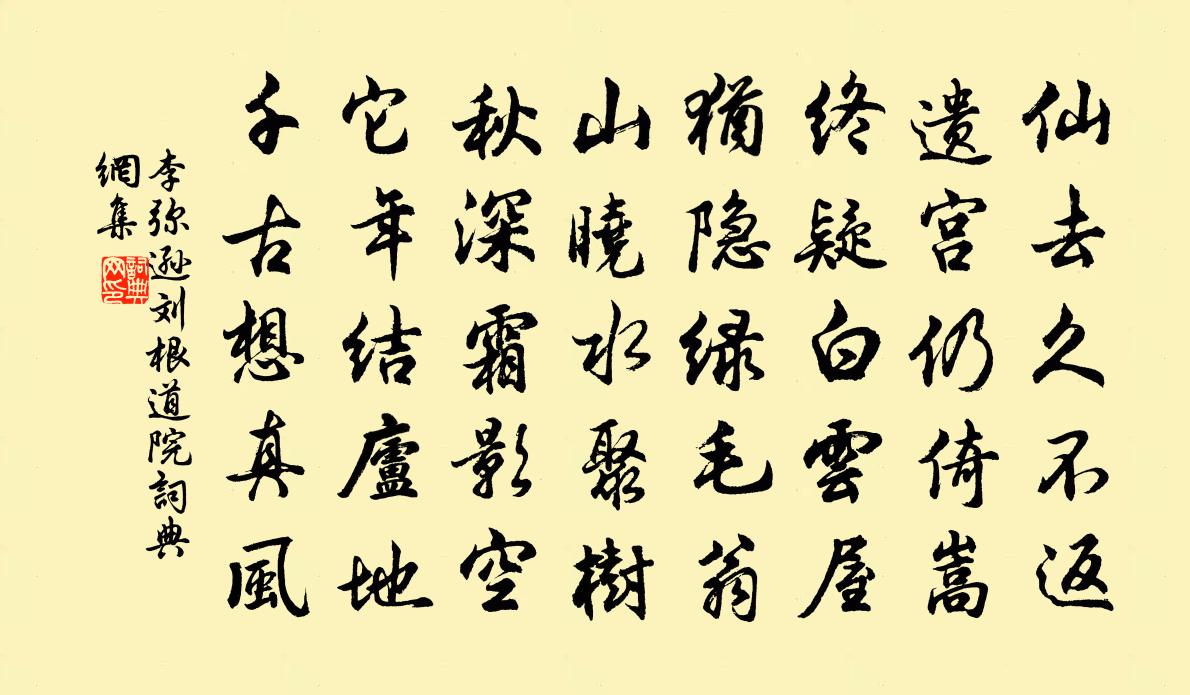 仙去久不返
遗宫仍倚嵩
终疑白雲屋
猶隐绿毛翁
山曉水聚樹
秋深霜影空
它年结廬地
千古想真風
李弥逊刘根道院詞典
網集
詞典
网印